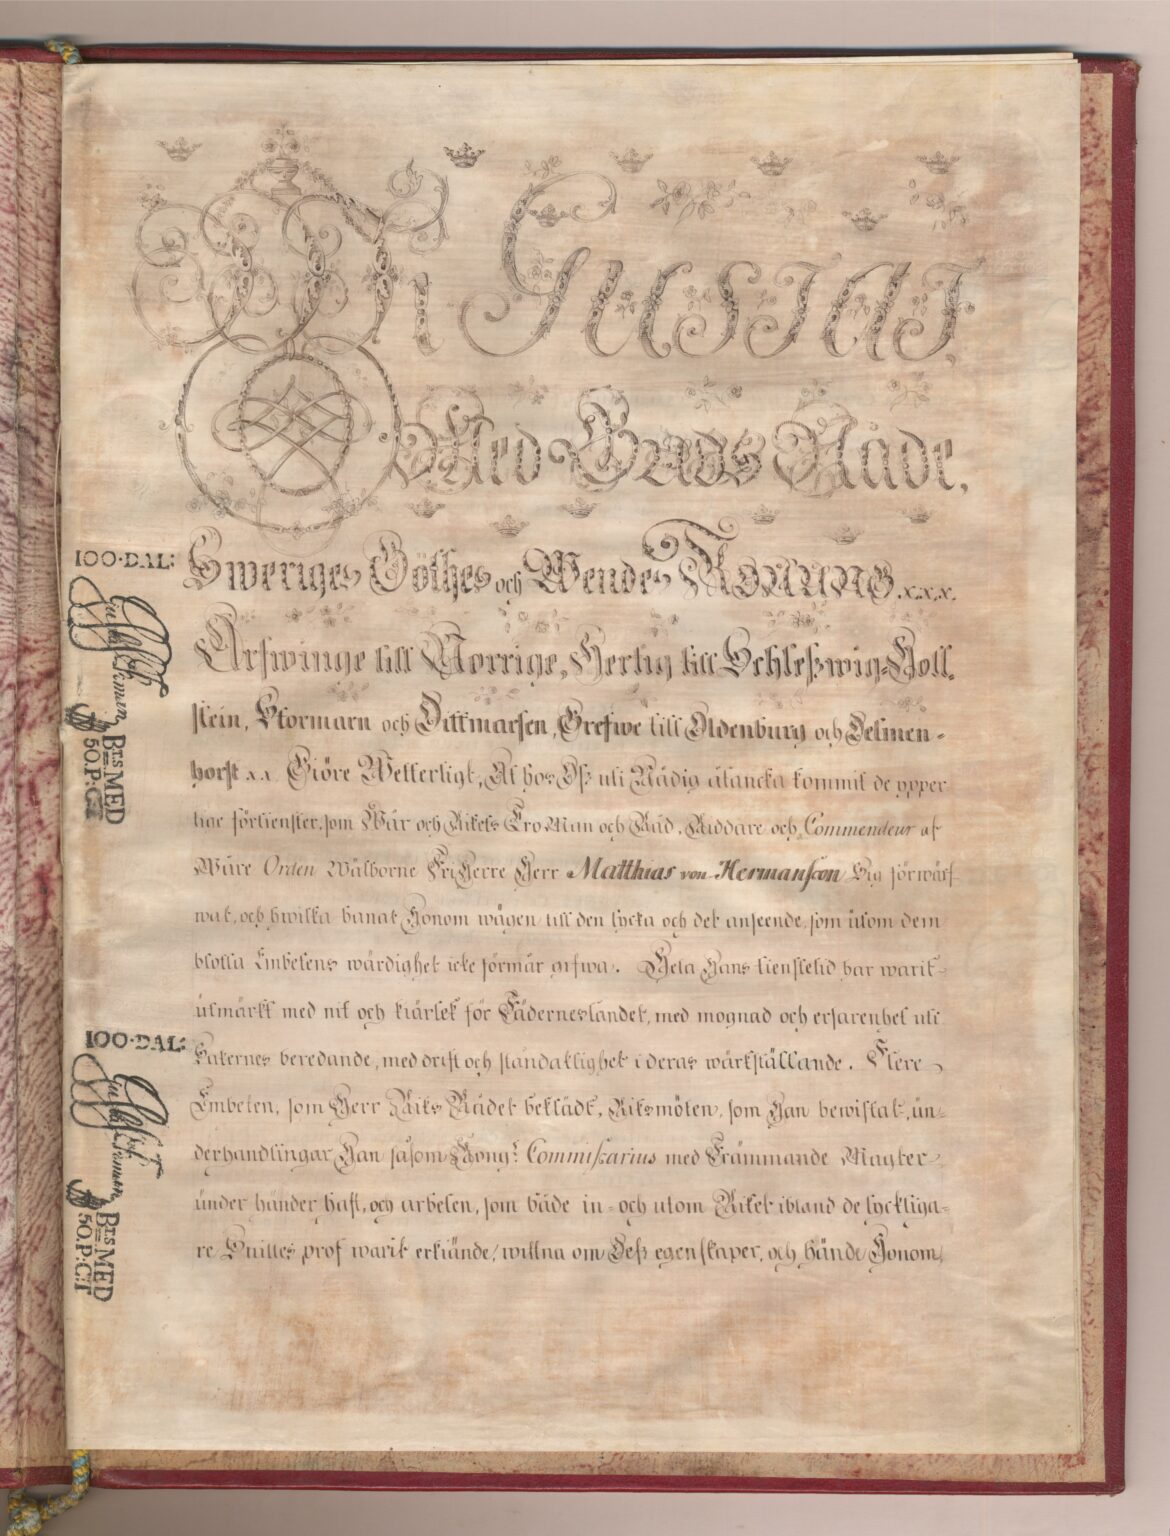 Wi Gustaf,
Med Guds Nåde,
Sweriges Göthes och Wendes Konung.x.x.x.
Arfwinge till Norrige, Hertig till Schleßwig-Holl-
stein, Stormarn och Dittmarsen, Grefwe till Oldenburg och Delmen-
horst x.x. Giöre Wetterligt, At hos Oß uti Nådig åtancka kommit de ypper
lige förtienster, som Wår och Rikets Tro Man och Råd, Riddare och Commendeur af
Wåre Orden Wälborne FriHerre Herr Matthias von Hermanſson Sig förwärf
wat, och hwilka banat Honom wägen till den lycka och det anseende, som utom dem
blotta Embetens wärdighet icke förmår gifwa. Hela Hans tienstetid har warit
utmärkt med nit och kiärlek för Fäderneslandet, med mognad och erfarenhet uti
Sakernes beredande, med drift och ståndaktighet i deras wärkställande. Flere
Embeten, som Herr Riks Rådet beklädt, Riksmöten, som Han bewistat, un-
derhandlingar Han såsom Kongr. Commiſsarius med Främmande Magter
under händer haft, och arbeten, som både in- och utom Riket ibland de lyckliga-
re Snilles prof warit erkiände, wittna om Deß egenskaper, och hände Honom
100·DAL:
BTS MED
50.P:CT
100·DAL:
BTS MED
50.P:CT